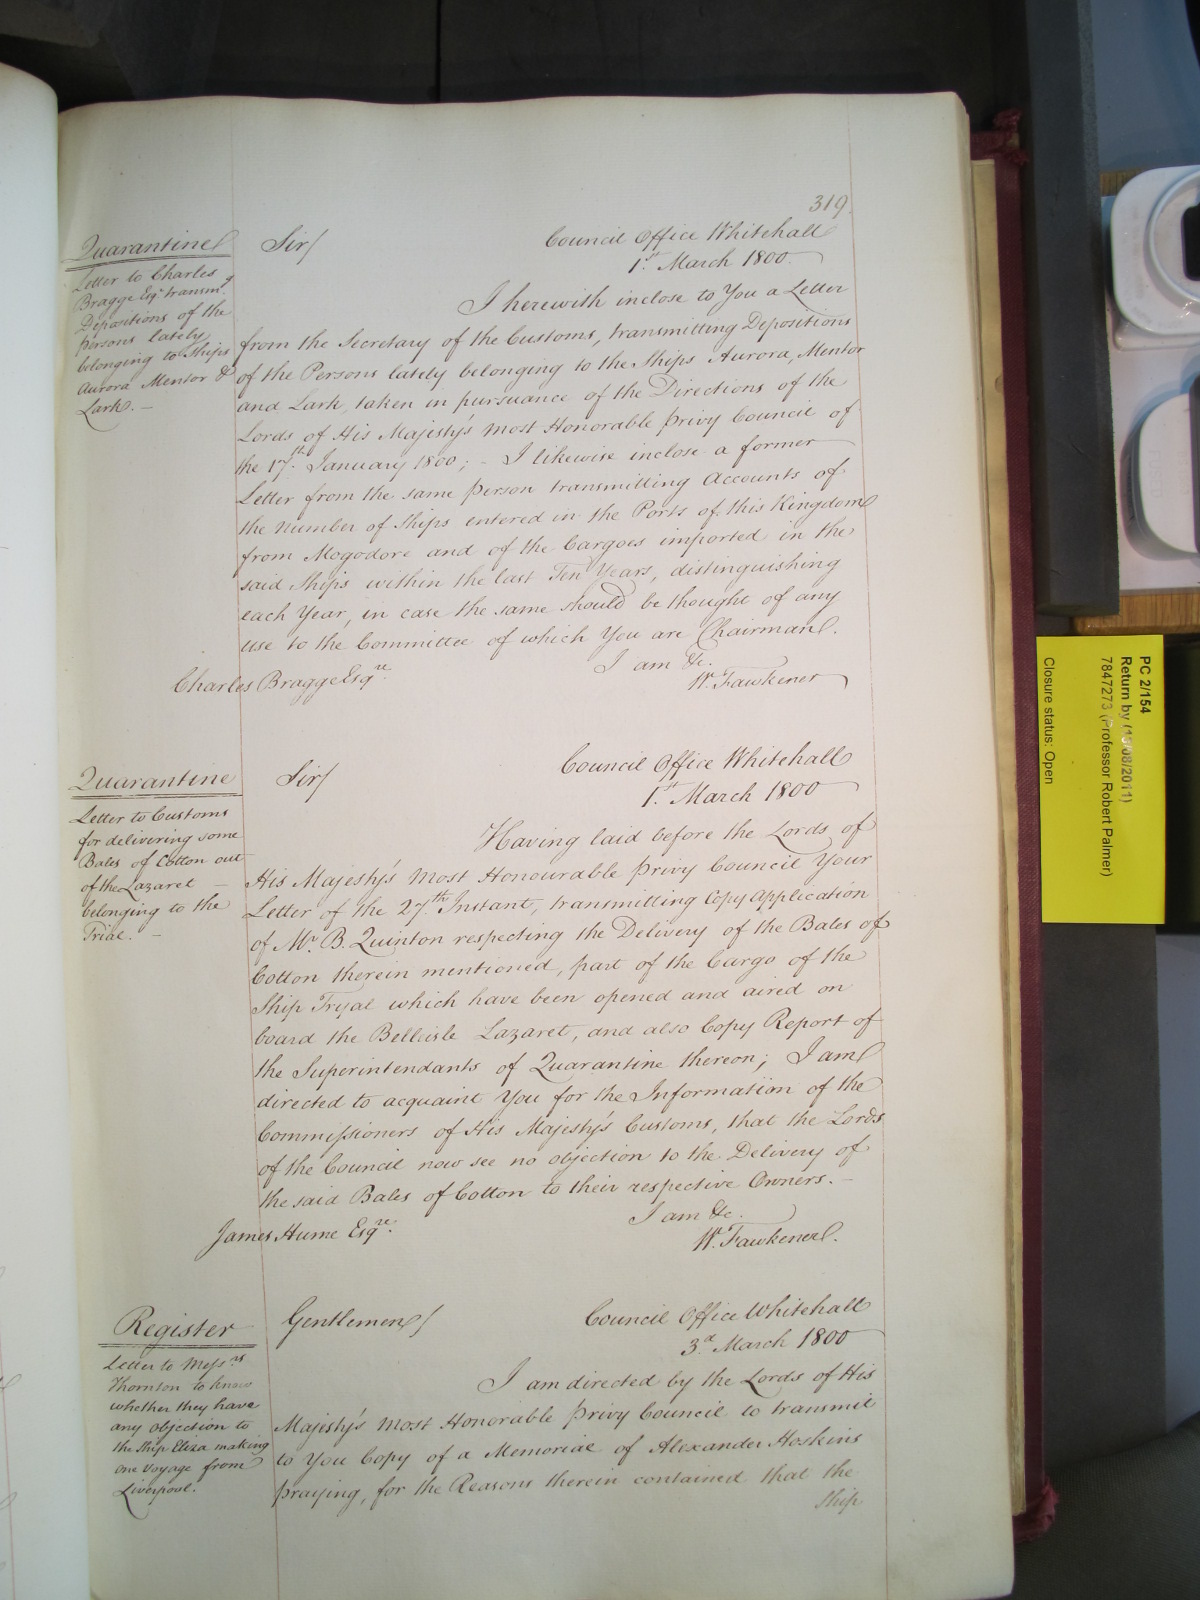 319
Quarantine
Letter to Charles
Bragge Esqr. transmg.
Depositions of the
persons lately
belonging to Ships
Aurora Mentor &
Lark. –
Sir/
Council Office Whitehall
1st. March 1800
I herewith inclose to You a Letter
from the Secretary of the Customs, transmitting Depositions
of the Persons lately belonging to the Ships Aurora, Mentor
and Lark, taken in pursuance of the Directions of the
Lords of His Majesty's most Honorable Privy Council of
the 17th. January 1800; – I likewise inclose a former
Letter from the same person transmitting Accounts of
the number of Ships entered in the Ports of this Kingdom
from Mogodore and of the Cargoes imported in the
said Ships within the last Ten Years, distinguishing
each Year, in case the same should be thought of any
use to the Committee of which You are Chairman.
I am &c.
W. Fawkener
Charles Bragge Esqre.
Quarantine
Letter to Customs
for delivering some
Bales of Cotton out
of the Lazaret –
belonging to the
Trial. –
Sir/
Council Office Whitehall
1st. March 1800
Having laid before the Lords of
His Majesty's most Honourable Privy Council Your
Letter of the 27th. Instant, transmitting Copy Application
of Mr. B. Quinton respecting the Delivery of the Bales of
Cotton therein mentioned, part of the Cargo of the
Ship Tryal which have been opened and aired on
board the Belleisle Lazaret, and also Copy Report of
the Superintendants of Quarantine thereon; I am
directed to acquaint You for the Information of the
Commissioners of His Majesty's Customs, that the Lords
of the Council now see no objection to the Delivery of
the said Bales of Cotton to their respective Owners. –
I am &c.
W. Fawkener.
James Hume Esqre.
Register
Letter to Messrs
Thornton to know
whether they have
any objection to
the Ship Eliza making
one Voyage from
Liverpool.
Gentlemen/
Council Office Whitehall
3d. March 1800
I am directed by the Lords of His
Majesty's most Honorable Privy Council to transmit
to You Copy of a Memorial of Alexander Hoskins
praying, for the Reasons therein contained that the
Ship
PC 2/154
Return by (13/08/2011)
7847273 (Professor Robert Palmer)
Closure status: Open